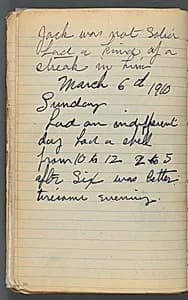 Jack was not Sober
had a kind of a
streak in him
March 6 d 1910
Sunday
had an indifferent
day had a spell
from 10 to 12 2 to 5
after Six was better
tiresome evening.